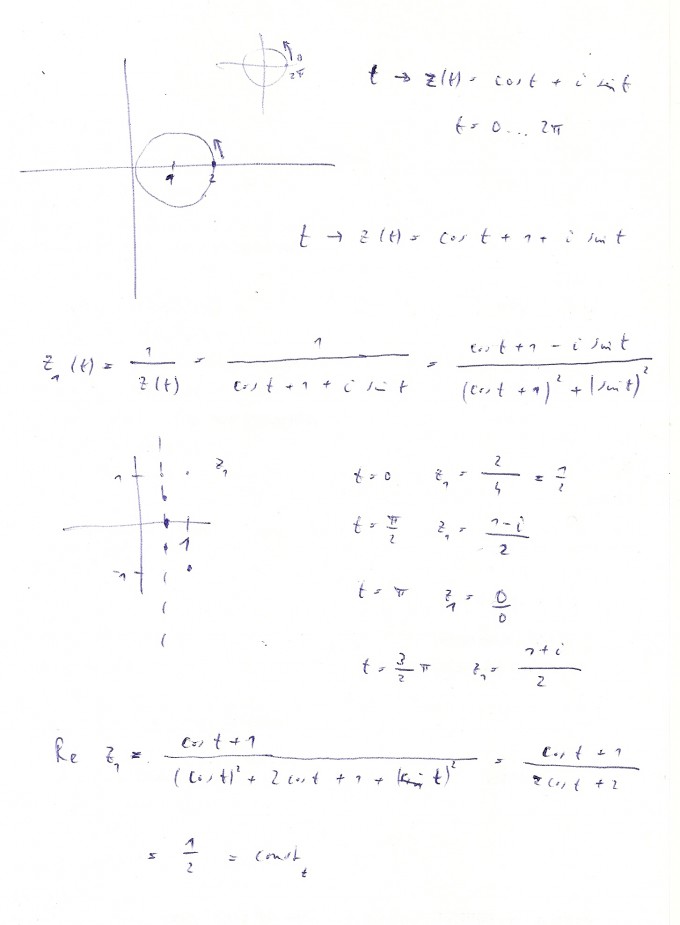 0
2π
t → z(t) = cos t + i sin t
t = 0 ... 2π
1 2
t → z(t) = cos t + 1 + i sin t
z₁(t) = 1/z(t) = 1/(cos t + 1 + i sin t) = (cos t + 1 - i sin t)/((cos t + 1)² + (sin t)²)
1 z₁
t = 0 z₁ = 2/4 = 1/2
t = π/2 z₁ = (1-i)/2
1
-1
t = π z₁ = 0/0
t = 3/2 π z₁ = (1+i)/2
Re z₁ = (cos t + 1)/((cos t)² + 2 cos t + 1 + (sin t)²) = (cos t + 1)/(2 cos t + 2)
= 1/2 = const_t